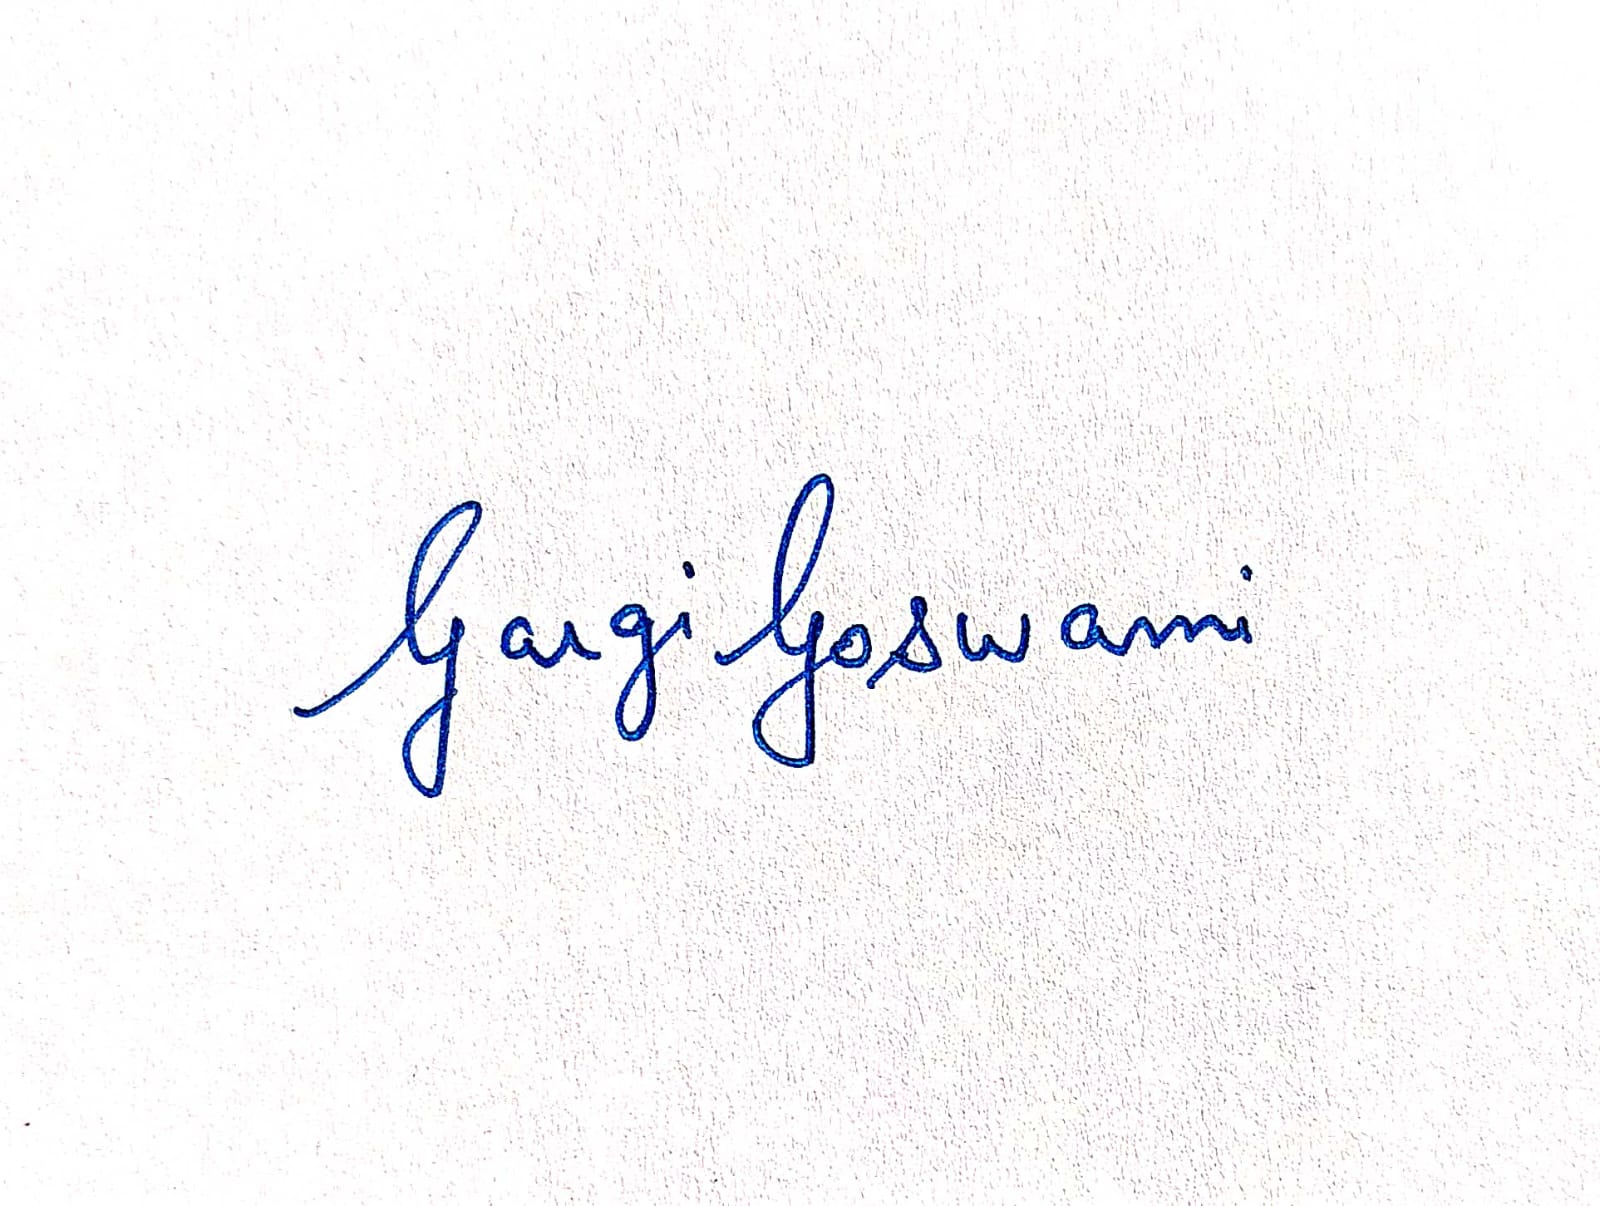 Gargi Goswami